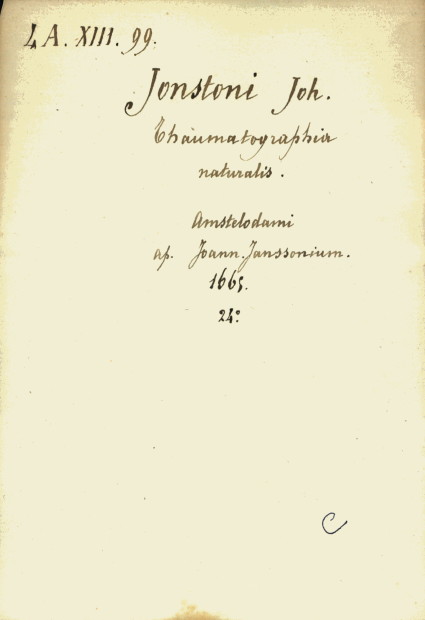 4 A. XIII. 99.
Jonstoni Joh.
Thaumatographia
naturalis.
Amstelodami
ap. Joann. Janssonium.
1665.
24°
C